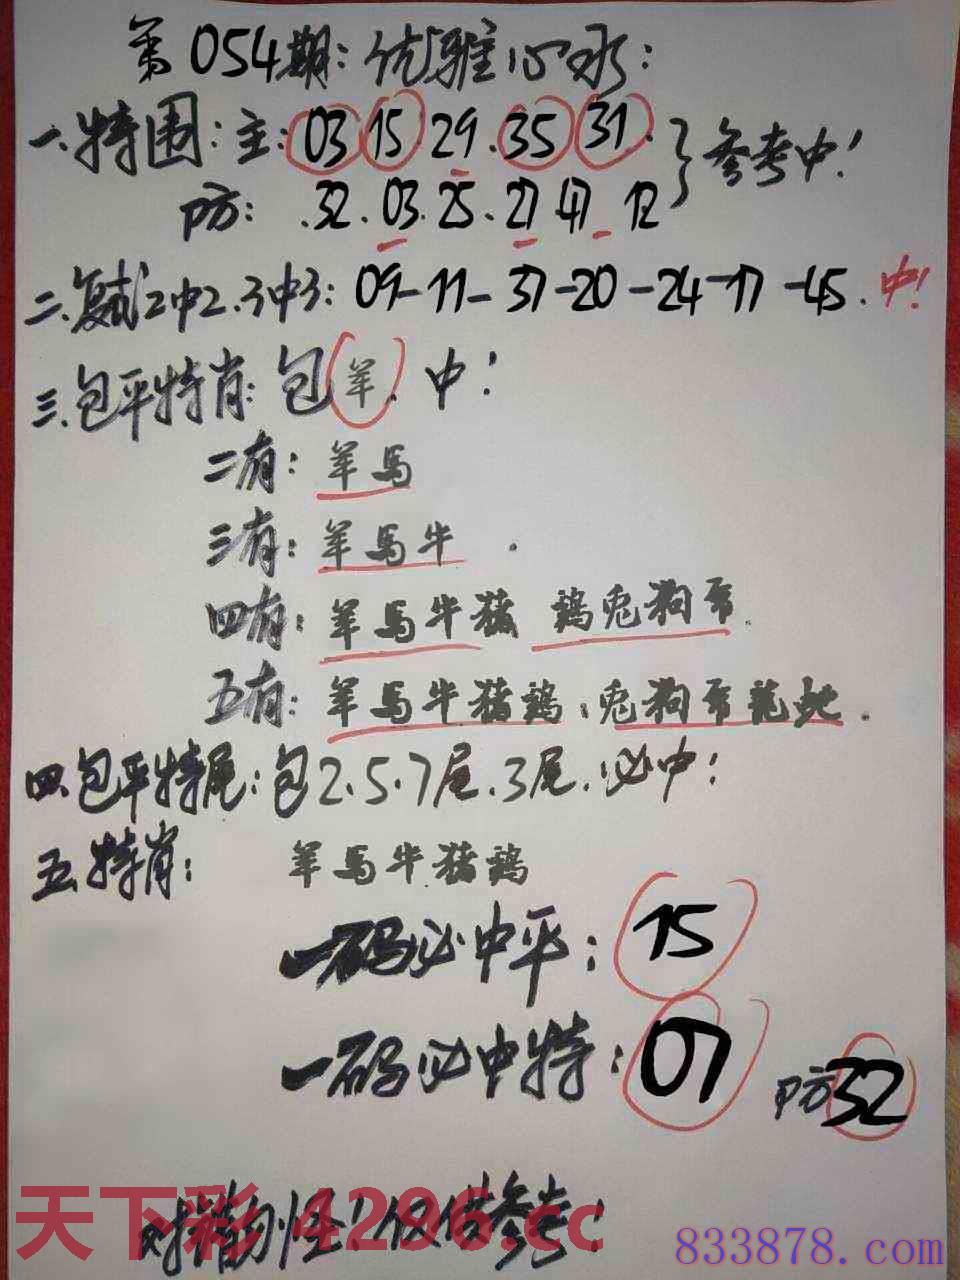 第054期:优雅心水:
一.特围:主:03 15.29.35 31.
防:.32.03.25.27 47 12
}参考中!
二.复式2中2.3中3:09-11-37-20-24-17-45.中!
三.包平特肖:包羊.中!
二有:羊马
三有:羊马牛.
四有:羊马牛猪 鸡兔狗
五有:羊马牛猪鸡:兔狗龍虵.
四.包平特尾:包2.5.7尾.3尾.必中!
五.特肖:羊马牛.猪鸡
一码必中平:15
一码必中特:07 防32
对错勿怪!仅供参考!
天下彩 4296.cc
833878.com